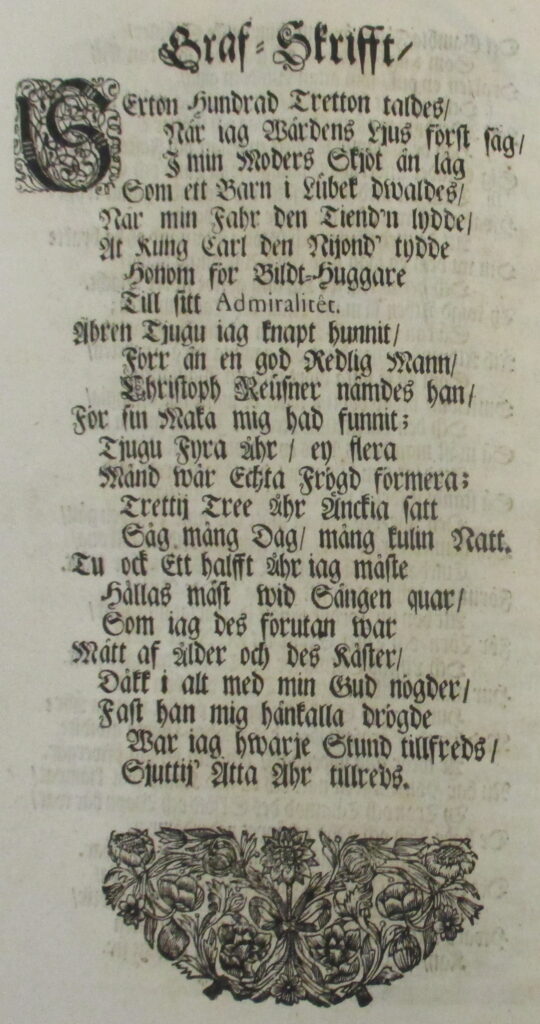 Graf-Skrifft/
SErton Hundrad Tretton taldes/
När iag Wärdens Ljus först såg/
J min Moders Skjöt än låg
Som ett Barn i Lübek dwaldes/
När min Fahr den Tiend'n lydde/
At Kung Carl den Nijond' tydde
Honom för Bildt-Huggare
Till sitt Admiralitêt.
Åhren Tjugu iag knapt hunnit/
Förr än en god Redlig Mann/
Christoph Reüsner nämdes han/
För sin Maka mig had funnit;
Tjugu Fyra åhr / ey flera
Månd wår Echta Frögd formera;
Trettij Tree åhr Änckia satt
Såg mång Dag/ mång kulin Natt.
Tu ock Ett halfft åhr iag måste
Hållas mäst wid Sängen quar/
Som iag des förutan war
Mått af ålder och des Kåster/
Däkk i alt med min Gud nögder/
Fast han mig hänkalla drögde
War iag hwarje Stund tillfreds/
Sjuttij' Åtta Åhr tillreds.